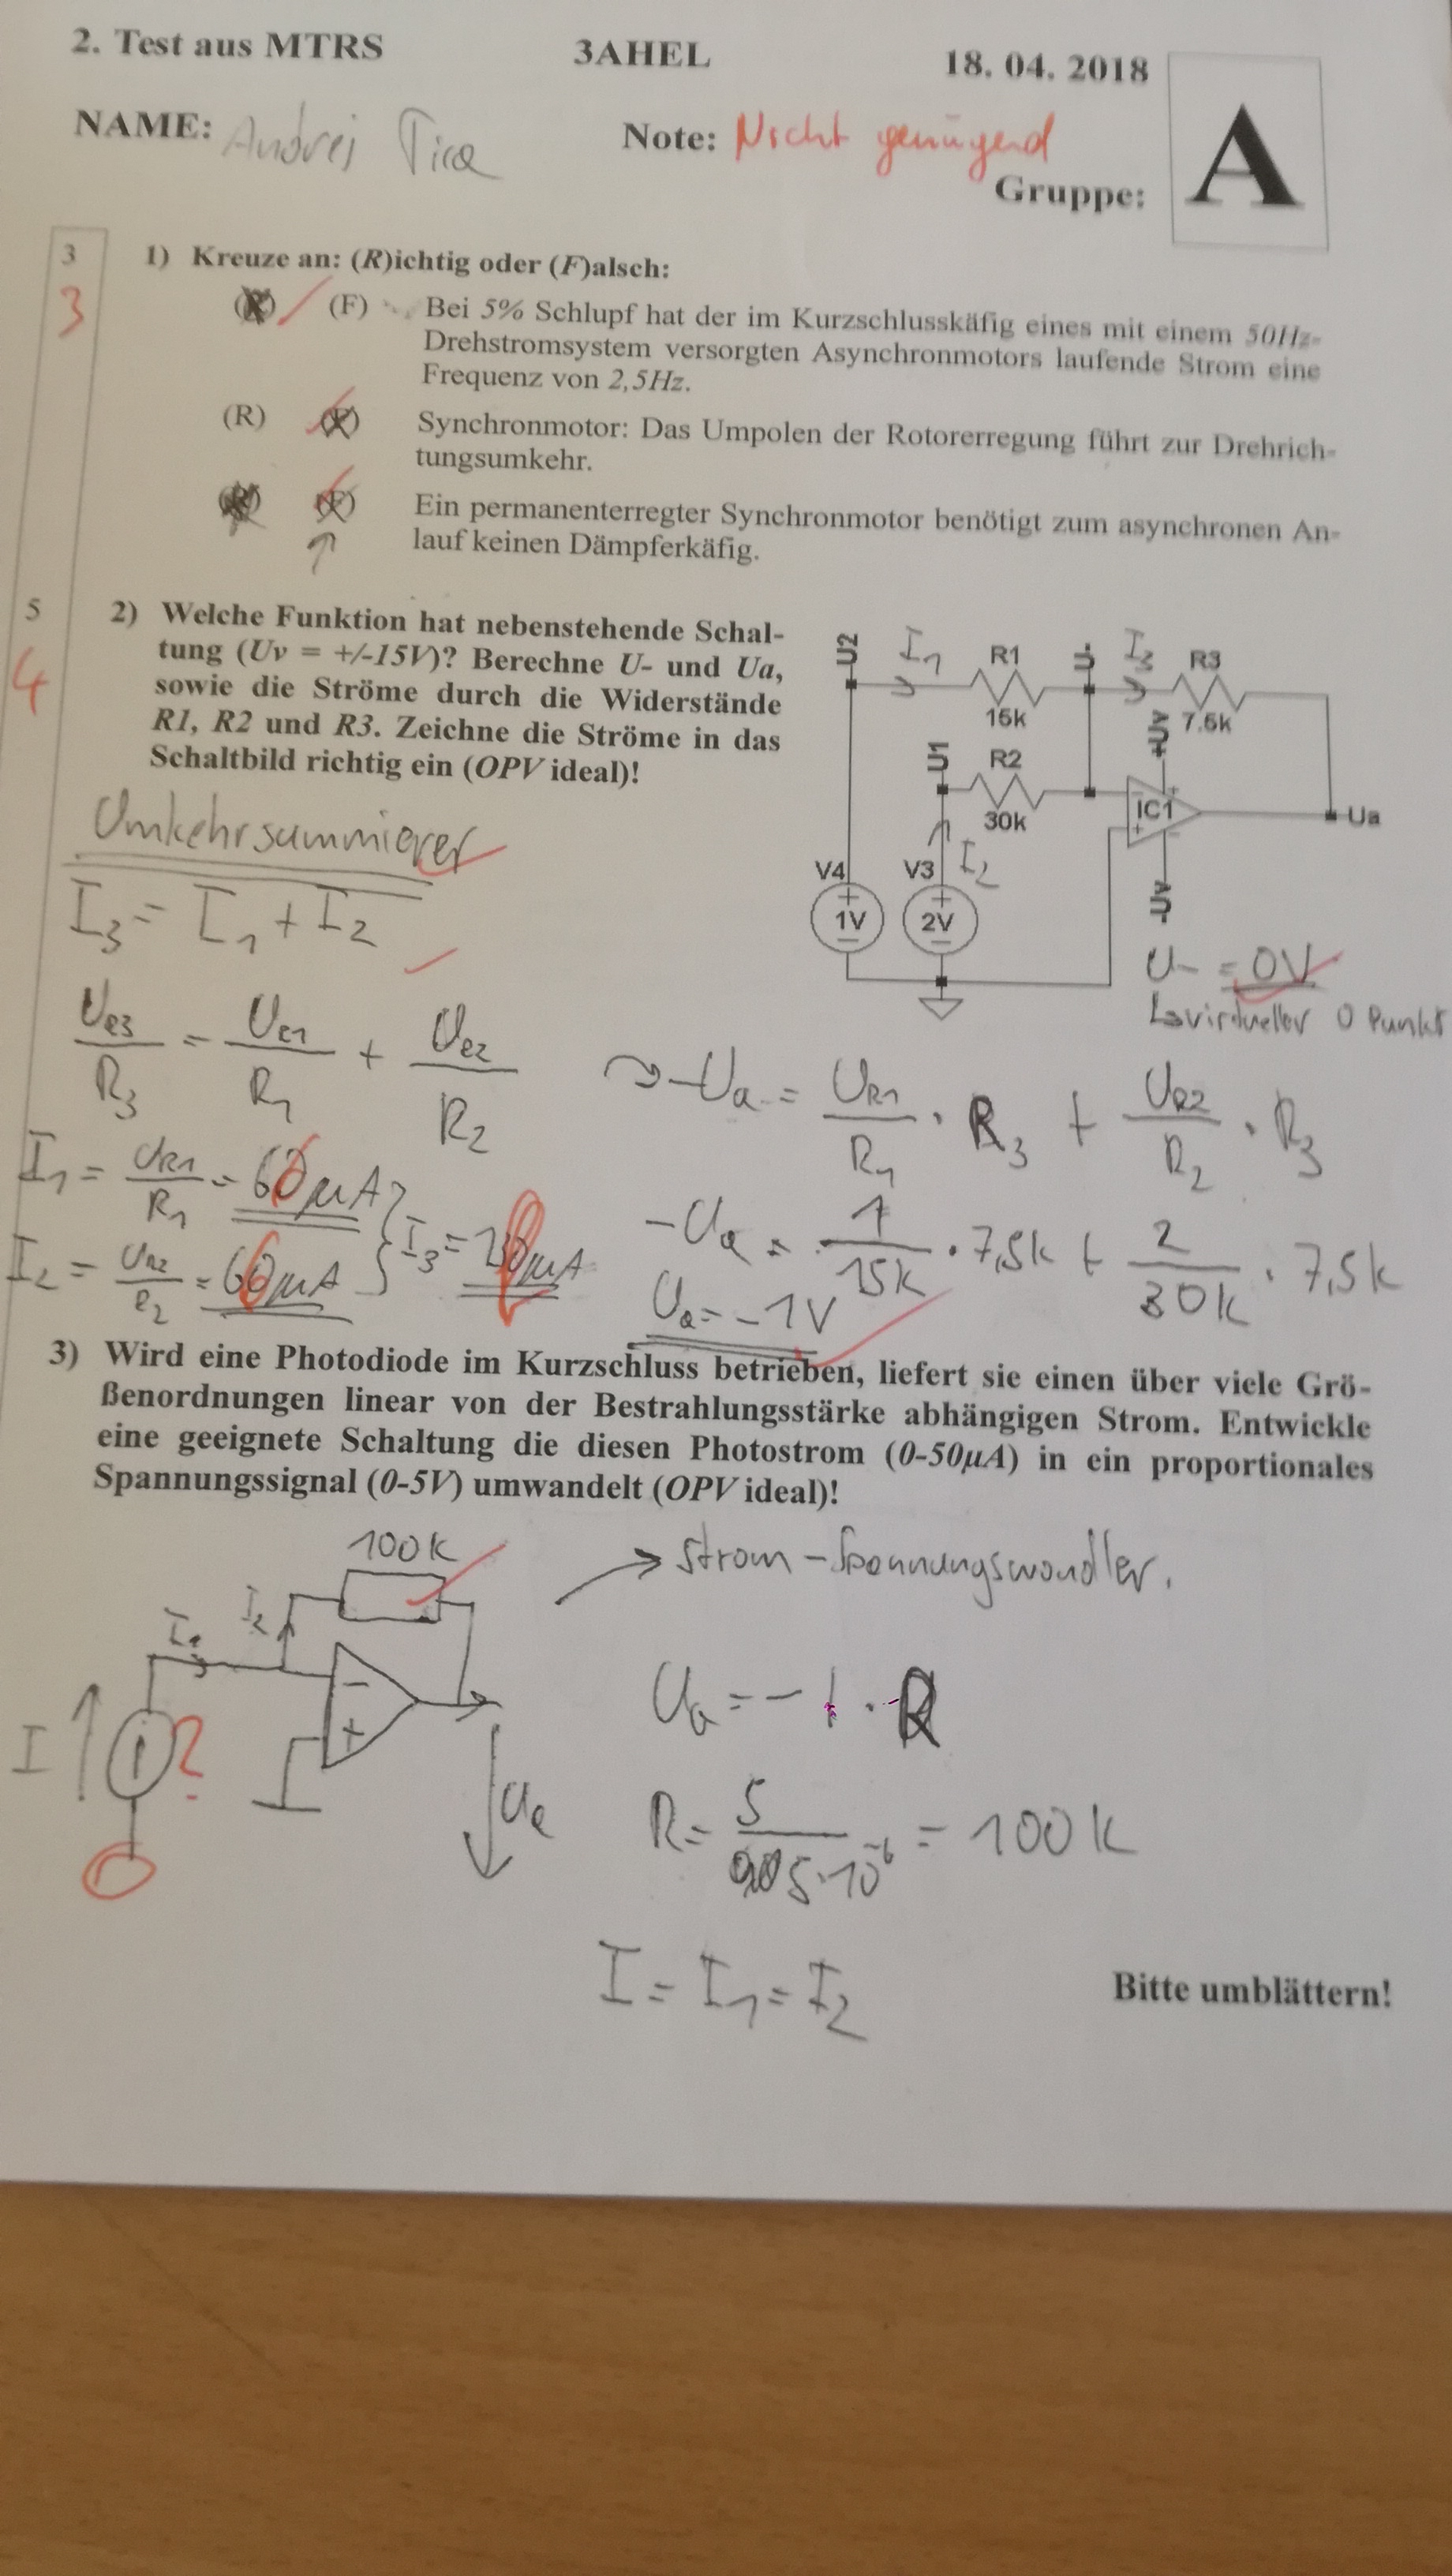 2. Test aus MTRS 3AHEL 18. 04. 2018
NAME: Andrei Tica Note: Nicht genügend
Gruppe: A
3
3
1) Kreuze an: (R)ichtig oder (F)alsch:
(R) (F) Bei 5% Schlupf hat der im Kurzschlusskäfig eines mit einem 50Hz-
Drehstromsystem versorgten Asynchronmotors laufende Strom eine
Frequenz von 2,5Hz.
(R) (F) Synchronmotor: Das Umpolen der Rotorerregung führt zur Drehrich-
tungsumkehr.
(R) (F) Ein permanenterregter Synchronmotor benötigt zum asynchronen An-
lauf keinen Dämpferkäfig.
5
4
2) Welche Funktion hat nebenstehende Schal-
tung (Uv = +/-15V)? Berechne U- und Ua,
sowie die Ströme durch die Widerstände
R1, R2 und R3. Zeichne die Ströme in das
Schaltbild richtig ein (OPV ideal)!
U2 I1 R1 U- I3 R3
15k 7.5k
U1 R2 UV+
30k IC1 Ua
I2
V4 V3
1V 2V
UV-
U- = 0V
↳ virtueller 0 Punkt
Umkehrsummierer
I3 = I1 + I2
UR3/R3 = UR1/R1 + UR2/R2
↷ -Ua = UR1/R1 · R3 + UR2/R2 · R3
I1 = UR1/R1 = 60µA
I2 = UR2/R2 = 60µA } I3 = µA
-Ua = 1/15k · 7,5k + 2/30k · 7,5k
Ua = -1V
3) Wird eine Photodiode im Kurzschluss betrieben, liefert sie einen über viele Grö-
ßenordnungen linear von der Bestrahlungsstärke abhängigen Strom. Entwickle
eine geeignete Schaltung die diesen Photostrom (0-50µA) in ein proportionales
Spannungssignal (0-5V) umwandelt (OPV ideal)!
100k
→ Strom-Spannungswandler.
I1 I2
I ? Ua
Ua = -I · R
R = 5/5·10⁻⁶ = 100k
I = I1 = I2
Bitte umblättern!